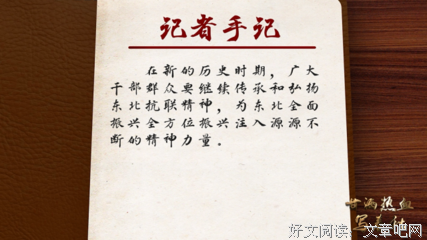 记者手记
在新的历史时期，广大
干部群众要继续传承和弘扬
东北抗联精神，为东北全面
振兴全方位振兴注入源源不
断的精神力量。
甘洒热血
好文阅读：文章吧网